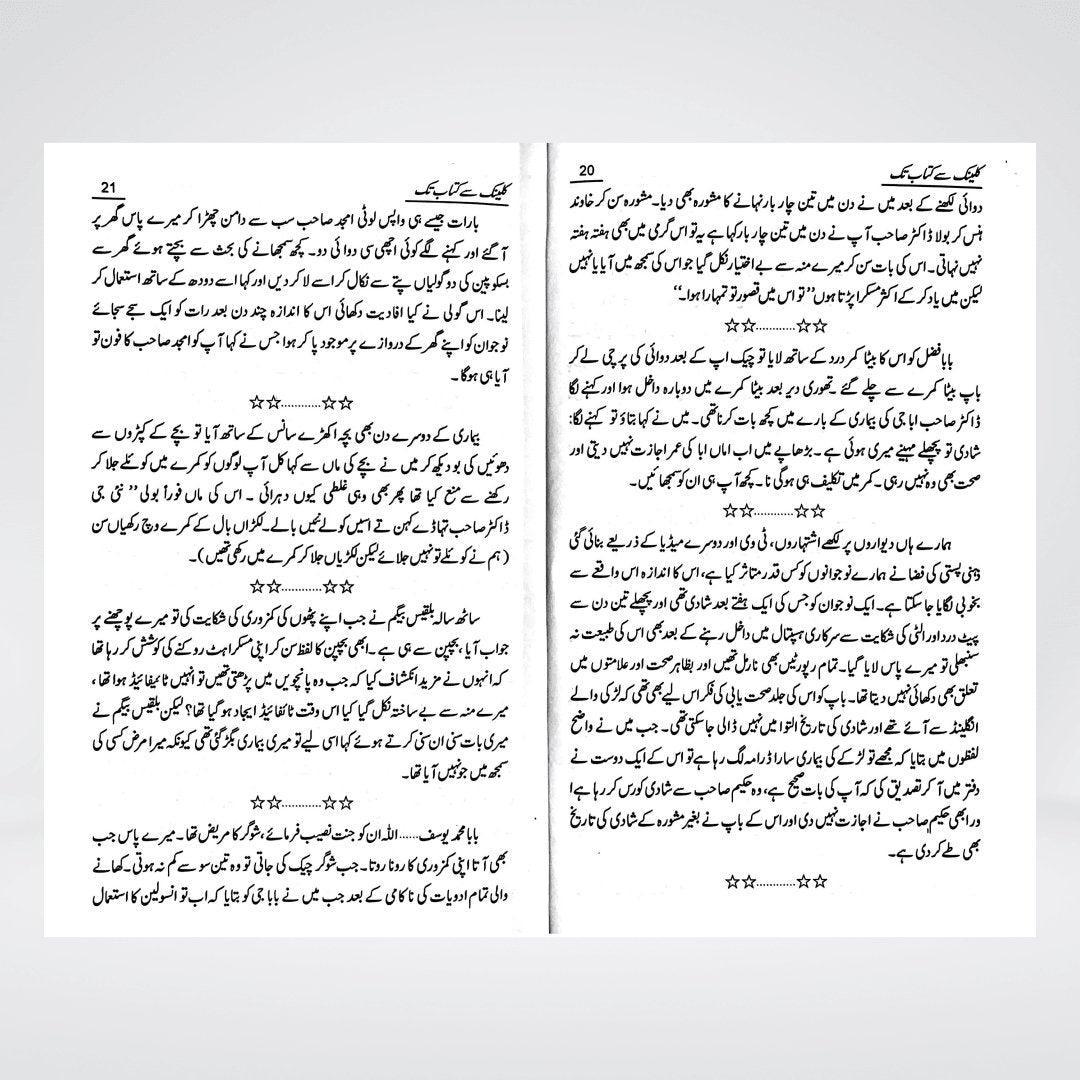 کلینک سے کتاب تک
20
دوائی لکھنے کے بعد میں نے دن میں تین چار بار نہانے کا مشورہ بھی دیا۔ مشورہ سن کر خاوند
ہنس کر بولا ڈاکٹر صاحب آپ نے دن میں تین چار بار کہا ہے یہ تو اس گرمی میں بھی ہفتہ ہفتہ
نہیں نہاتی۔ اس کی بات سن کر میرے منہ سے بے اختیار نکل گیا جو اس کی سمجھ میں آیا یا نہیں
لیکن میں یاد کر کے اکثر مسکرا پڑتا ہوں ’’تو اس میں قصور تو تمہارا ہوا۔‘‘
☆☆............☆☆
بابا فضل کو اس کا بیٹا کمر درد کے ساتھ لایا تو چیک اپ کے بعد دوائی کی پرچی لے کر
باپ بیٹا کمرے سے چلے گئے۔ تھوری دیر بعد بیٹا کمرے میں دوبارہ داخل ہوا اور کہنے لگا
ڈاکٹر صاحب ابا جی کی بیماری کے بارے میں کچھ بات کرنا تھی۔ میں نے کہا بتاؤ تو کہنے لگا:
شادی تو پچھلے مہینے میری ہوئی ہے۔ بڑھاپے میں اب اماں ابا کی عمر اجازت نہیں دیتی اور
صحت بھی وہ نہیں رہی۔ کمر میں تکلیف ہی ہو گی نا۔ کچھ آپ ہی ان کو سمجھائیں۔
☆☆............☆☆
ہمارے ہاں دیواروں پر لکھے اشتہاروں، ٹی وی اور دوسرے میڈیا کے ذریعے بنائی گئی
ذہنی پستی کی فضا نے ہمارے نوجوانوں کو کس قدر متاثر کیا ہے، اس کا اندازہ اس واقعے سے
بخوبی لگایا جا سکتا ہے۔ ایک نوجوان کو جس کی ایک ہفتے بعد شادی تھی اور پچھلے تین دن سے
پیٹ درد اور الٹی کی شکایت سے سرکاری ہسپتال میں داخل رہنے کے بعد بھی اس کی طبیعت نہ
سنبھلی تو میرے پاس لایا گیا۔ تمام رپورٹیں بھی نارمل تھیں اور بظاہر صحت اور علامتوں میں
تعلق بھی دکھائی نہیں دیتا تھا۔ باپ کو اس کی جلد صحت یابی کی فکر اس لیے بھی تھی کہ لڑکی والے
انگلینڈ سے آئے تھے اور شادی کی تاریخ التوا میں نہیں ڈالی جا سکتی تھی۔ جب میں نے واضح
لفظوں میں بتایا کہ مجھے تو لڑکے کی بیماری سارا ڈرامہ لگ رہا ہے تو اس کے ایک دوست نے
دفتر میں آ کر تصدیق کی کہ آپ کی بات صحیح ہے، وہ حکیم صاحب سے شادی کورس کر رہا ہے ا
ور ابھی حکیم صاحب نے اجازت نہیں دی اور اس کے باپ نے بغیر مشورہ کے شادی کی تاریخ
بھی طے کر دی ہے۔
☆☆............☆☆
کلینک سے کتاب تک
21
بارات جیسے ہی واپس لوٹی امجد صاحب سب سے دامن چھڑا کر میرے پاس گھر پر
آ گئے اور کہنے لگے کوئی اچھی سی دوائی دو۔ کچھ سمجھانے کی بحث سے بچتے ہوئے گھر سے
بسکوپین کی دو گولیاں پتے سے نکال کر اسے لا کر دیں اور کہا اسے دودھ کے ساتھ استعمال کر
لینا۔ اس گولی نے کیا افادیت دکھائی اس کا اندازہ چند دن بعد رات کو ایک سجے سجائے
نوجوان کو اپنے گھر کے دروازے پر موجود پا کر ہوا جس نے کہا آپ کو امجد صاحب کا فون تو
آیا ہی ہوگا۔
☆☆............☆☆
بیماری کے دوسرے دن بھی بچہ اکھڑے سانس کے ساتھ آیا تو بچے کے کپڑوں سے
دھوئیں کی بو دیکھ کر میں نے بچے کی ماں سے کہا کل آپ لوگوں کو کمرے میں کوئلے جلا کر
رکھنے سے منع کیا تھا پھر بھی وہی غلطی کیوں دہرائی۔ اس کی ماں فوراً بولی ’’نئی جی
ڈاکٹر صاحب تہاڈے کہن تے اسیں کولے نئیں بالے۔ لکڑاں بال کے کمرے وچ رکھیاں سن
(ہم نے کوئلے تو نہیں جلائے لیکن لکڑیاں جلا کر کمرے میں رکھی تھیں)۔
☆☆............☆☆
ساٹھ سالہ بلقیس بیگم نے جب اپنے پٹھوں کی کمزوری کی شکایت کی تو میرے پوچھنے پر
جواب آیا، بچپن سے ہی ہے۔ ابھی بچپن کا لفظ سن کر اپنی مسکراہٹ روکنے کی کوشش کر رہا تھا
کہ انہوں نے مزید انکشاف کیا کہ جب وہ پانچویں میں پڑھتی تھیں تو انہیں ٹائیفائیڈ ہوا تھا،
میرے منہ سے بے ساختہ نکل گیا کیا اس وقت ٹائفائیڈ ایجاد ہو گیا تھا؟ لیکن بلقیس بیگم نے
میری بات سنی ان سنی کرتے ہوئے کہا اسی لیے تو میری بیماری بگڑ گئی تھی کیونکہ میرا مرض کسی کی
سمجھ میں جو نہیں آیا تھا۔
☆☆............☆☆
بابا محمد یوسف...... اللہ ان کو جنت نصیب فرمائے، شوگر کا مریض تھا۔ میرے پاس جب
بھی آتا اپنی کمزوری کا رونا روتا۔ جب شوگر چیک کی جاتی تو وہ تین سو سے کم نہ ہوتی۔ کھانے
والی تمام ادویات کی ناکامی کے بعد جب میں نے بابا جی کو بتایا کہ اب تو انسولین کا استعمال